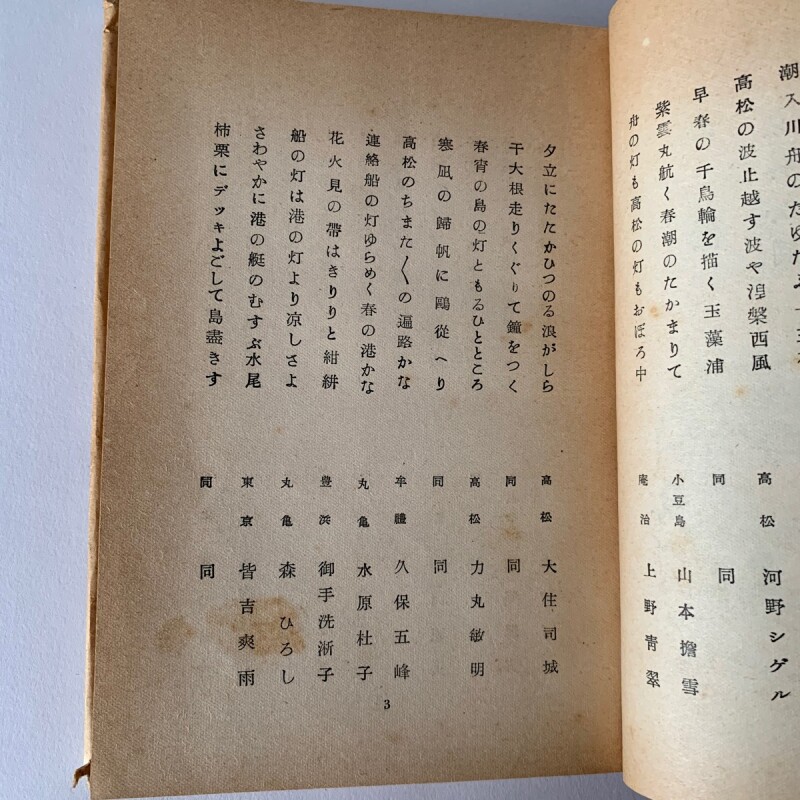 潮入川舟のたゆたふ
高松の波止越す波や涅槃西風 高松 河野シゲル
早春の千鳥輪を描く玉藻浦 同 同
紫雲丸航く春潮のたかまりて 小豆島 山本擔雪
舟の灯も高松の灯もおぼろ中 庵治 上野青翠
夕立にたたかひつのる浪がしら 高松 大住司城
干大根走りくぐりて鐘をつく 同 同
春宵の島の灯ともるひとところ 高松 力丸敏明
寒凪の歸帆に鷗從へり 同 同
高松のちまた〱の遍路かな 牟禮 久保五峰
連絡船の灯ゆらめく春の港かな 丸亀 水原杜子
花火見の帶はきりりと紺絣 豊浜 御手洗淅子
船の灯は港の灯より凉しさよ 丸亀 森ひろし
さわやかに港の艇のむすぶ水尾 東京 皆吉爽雨
柿栗にデッキよごして島盡きす 同 同
3